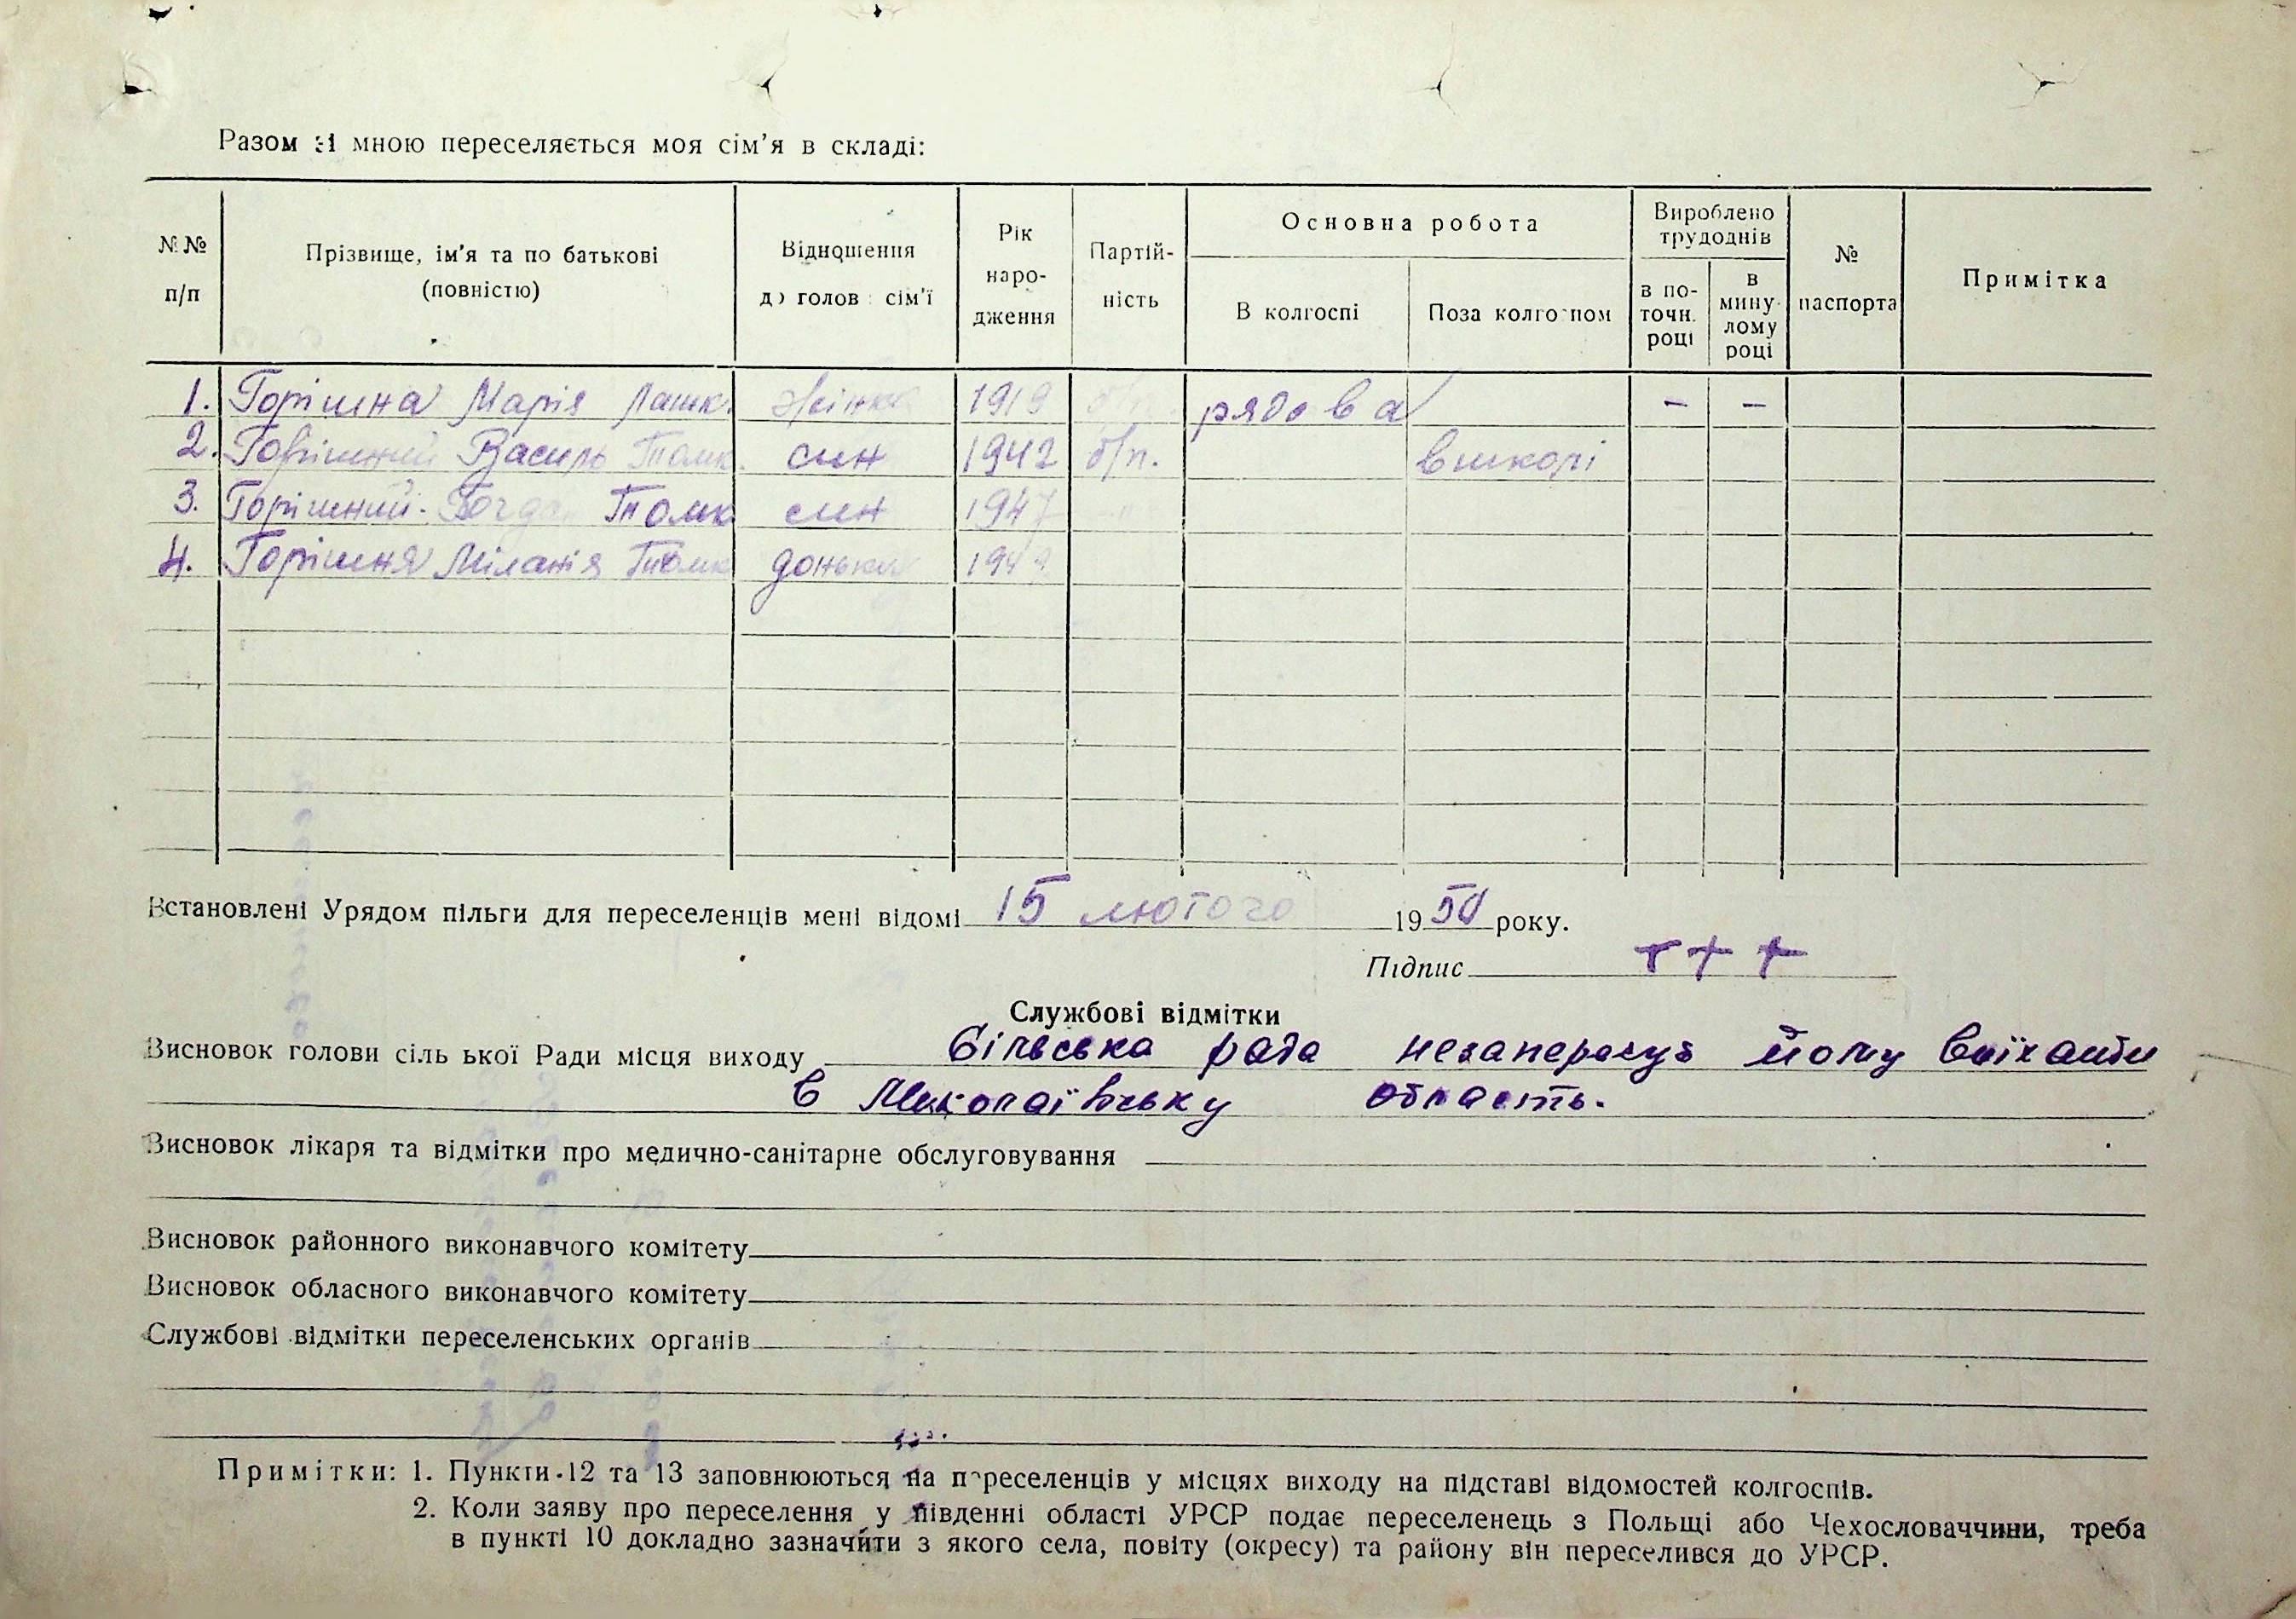 Разом зі мною переселяється моя сім'я в складі:
№№ п/п
Прізвище, ім'я та по батькові (повністю)
Відношення до голов сім'ї
Рік народження
Партійність
Основна робота
В колгоспі
Поза колгоспом
Вироблено трудоднів
в поточн. році
в минулому році
№ паспорта
Примітка
1. Горішна Марія жінка 1919 рядова – –
2. Горішний Василь Томк. син 1942 б/п. в школі
3. Горішний Богдан Томк син 1947
4. Горішня Міланія Томк донька
Встановлені Урядом пільги для переселенців мені відомі 15 лютого 1950 року.
Підпис + + +
Службові відмітки
Висновок голови сільської Ради місця виходу Сільська рада незаперечує йому виїхати
в Миколаївську область.
Висновок лікаря та відмітки про медично-санітарне обслуговування
Висновок районного виконавчого комітету
Висновок обласного виконавчого комітету
Службові відмітки переселенських органів
Примітки: 1. Пункти 12 та 13 заповнюються на переселенців у місцях виходу на підставі відомостей колгоспів.
2. Коли заяву про переселення у південні області УРСР подає переселенець з Польщі або Чехословаччини, треба
в пункті 10 докладно зазначити з якого села, повіту (окресу) та району він переселився до УРСР.